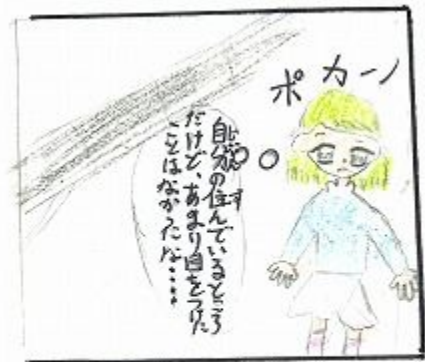 ポカーン
自分の住んでいるところ
だけど、あまり目をつけた
ことはなかったな・・・・